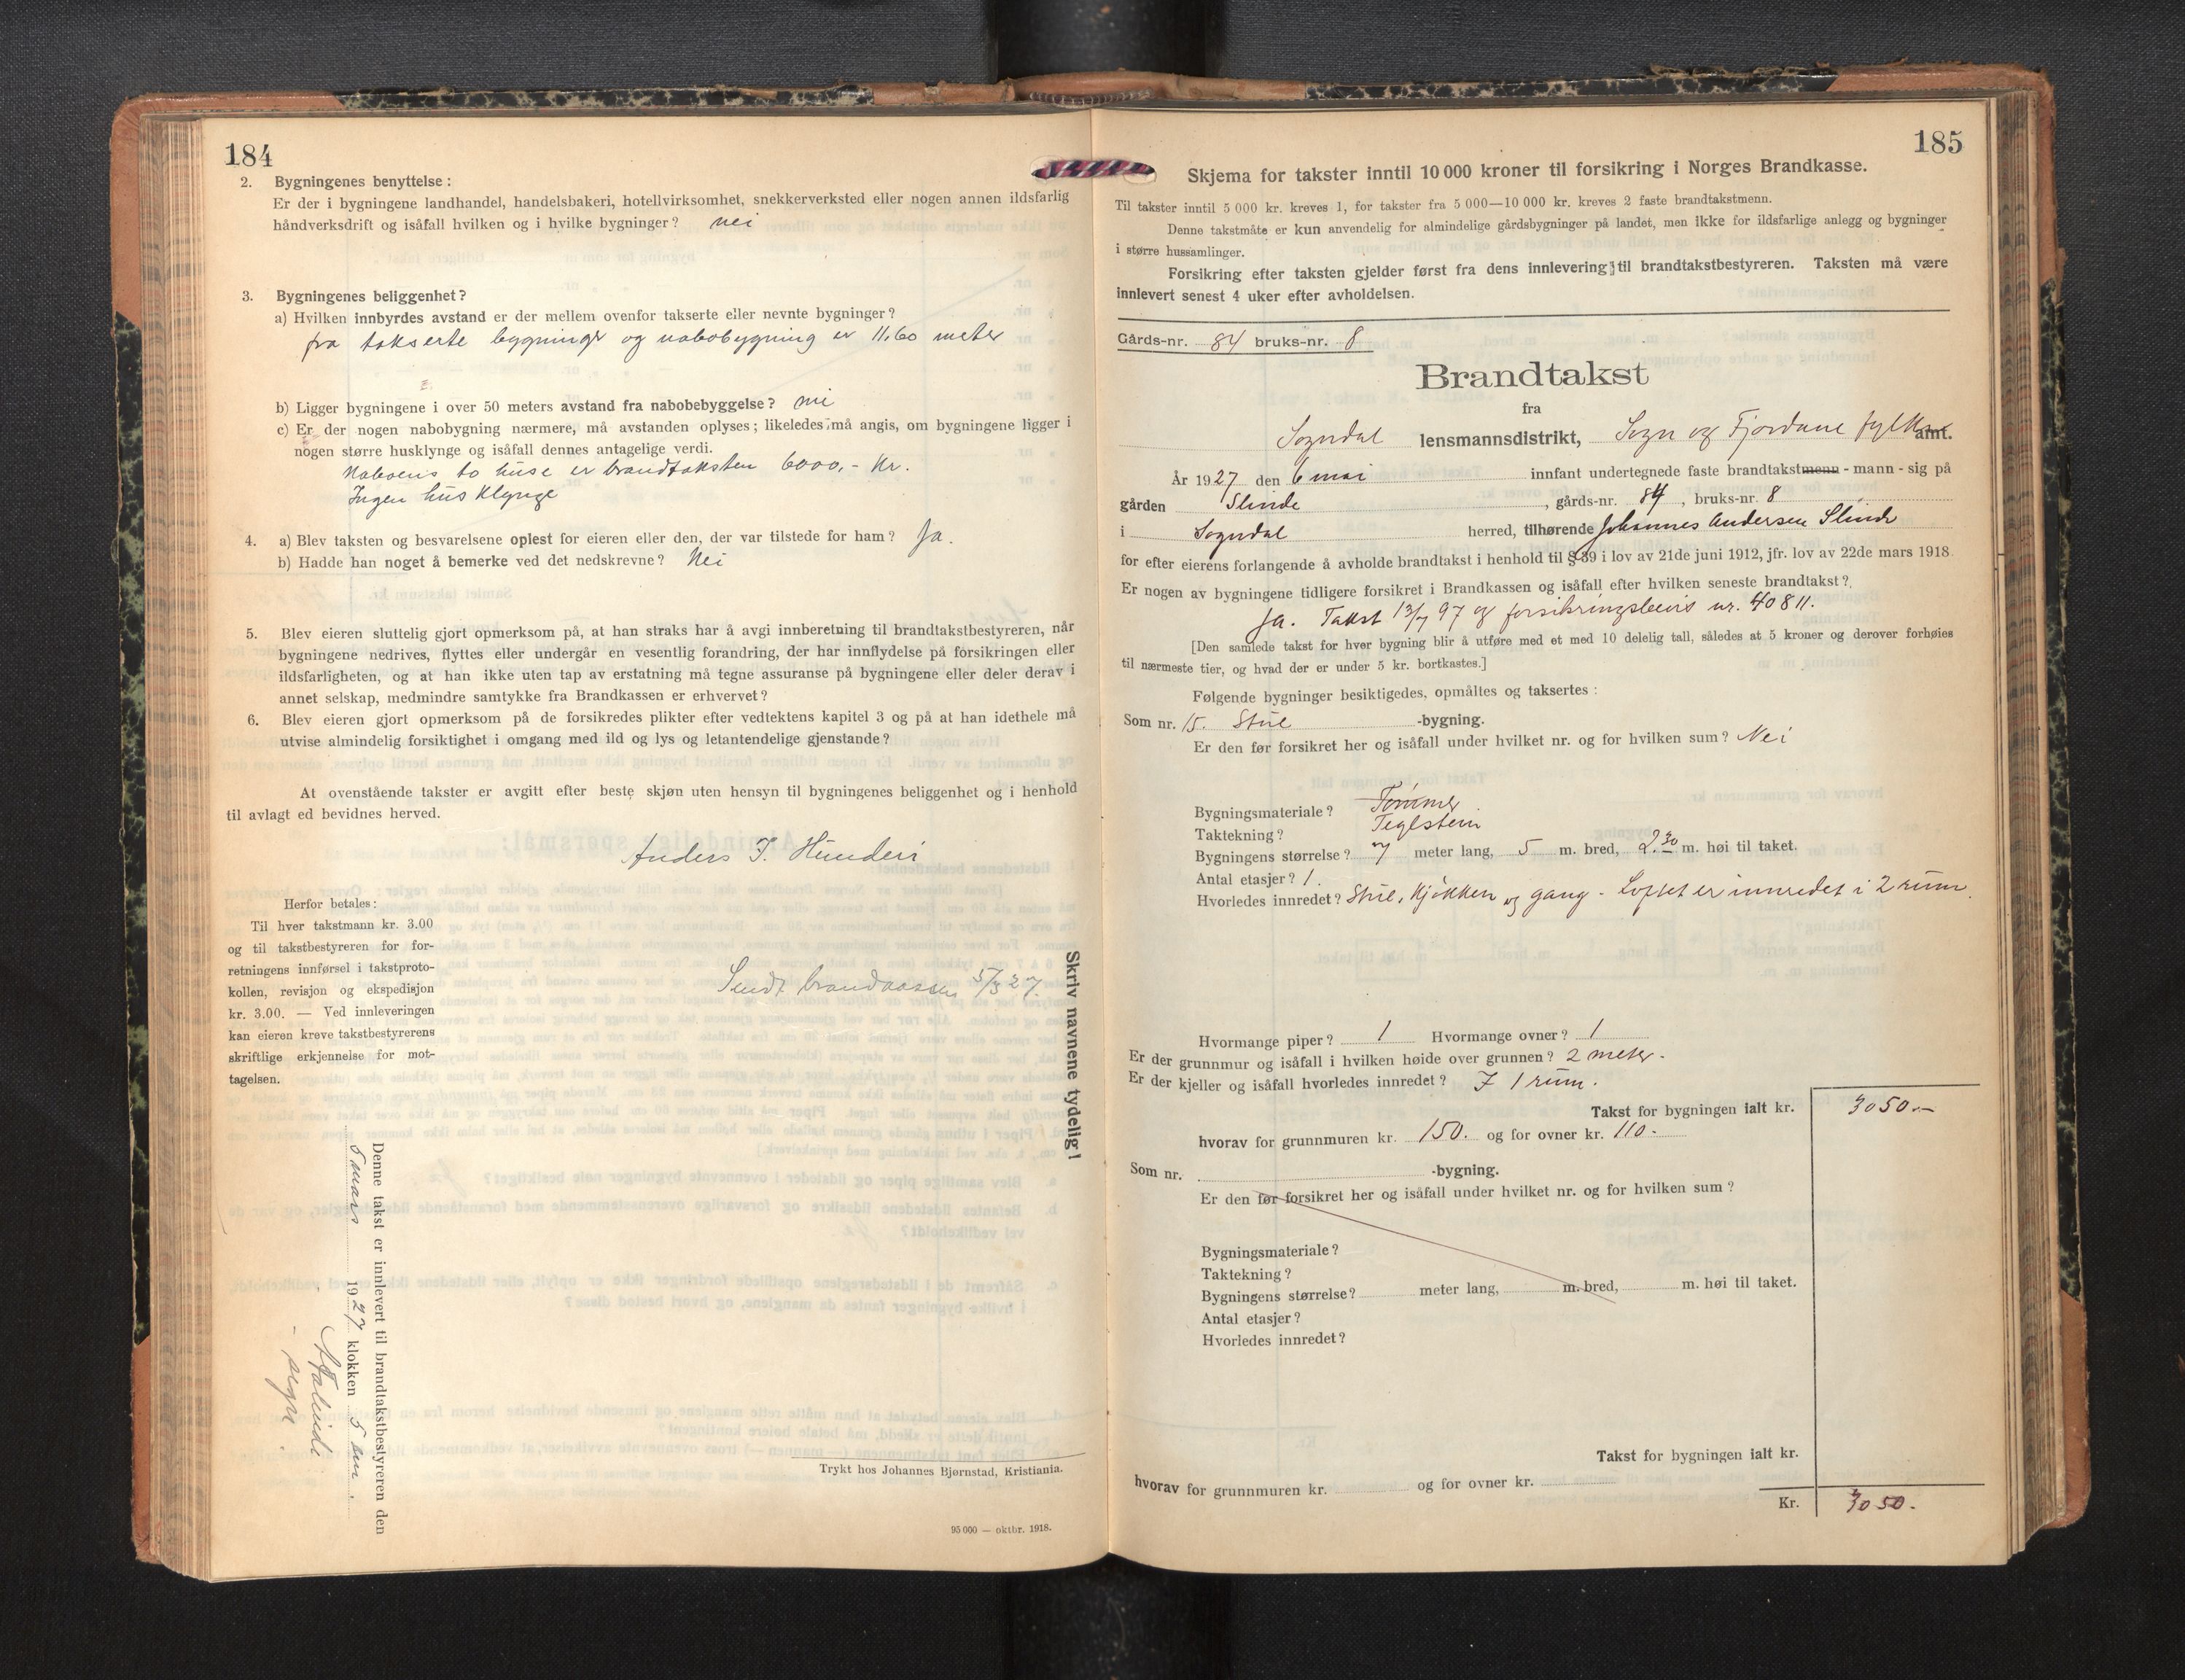 184
2. Bygningenes benyttelse :
Er der i bygningene landhandel, handelsbakeri, hotellvirksomhet, snekkerverksted eller nogen annen ildsfarlig
håndverksdrift og isåfall hvilken og i hvilke bygninger? nei
3. Bygningenes beliggenhet?
a) Hvilken innbyrdes avstand er der mellem ovenfor takserte eller nevnte bygninger?
fra takserte bygninger og nabobygning er 11,60 meter
b) Ligger bygningene i over 50 meters avstand fra nabobebyggelse? nei
c) Er der nogen nabobygning nærmere, må avstanden oplyses; likeledes må angis, om bygningene ligger i
nogen større husklynge og isåfall dennes antagelige verdi.
Naboens to huse er brandtaksten 6000,- Kr.
Ingen hus klynge
4. a) Blev taksten og besvarelsene oplest for eieren eller den, der var tilstede for ham? Ja.
b) Hadde han noget å bemerke ved det nedskrevne? Nei
5. Blev eieren sluttelig gjort opmerksom på, at han straks har å avgi innberetning til brandtakstbestyreren, når
bygningene nedrives, flyttes eller undergår en vesentlig forandring, der har innflydelse på forsikringen eller
ildsfarligheten, og at han ikke uten tap av erstatning må tegne assuranse på bygningene eller deler derav i
annet selskap, medmindre samtykke fra Brandkassen er erhvervet?
6. Blev eieren gjort opmerksom på de forsikredes plikter efter vedtektens kapitel 3 og på at han idethele må
utvise almindelig forsiktighet i omgang med ild og lys og letantendelige gjenstande?
At ovenstående takster er avgitt efter beste skjøn uten hensyn til bygningenes beliggenhet og i henhold
til avlagt ed bevidnes herved.
Anders I. Hunderi
Herfor betales:
Til hver takstmann kr. 3.00
og til takstbestyreren for for-
retningens innførsel i takstproto-
kollen, revisjon og ekspedisjon
kr. 3.00. — Ved innleveringen
kan eieren kreve takstbestyrerens
skriftlige erkjennelse for mot-
tagelsen.
Sendt brandkassen 5/3 27.
Skriv navnene tydelig!
Denne takst er innlevert til brandtakstbestyreren den
5 mars 1927 klokken 5 em.
- sogn.
Trykt hos Johannes Bjørnstad, Kristiania.
95 000 — oktbr. 1918.
185
Skjema for takster inntil 10 000 kroner til forsikring i Norges Brandkasse.
Til takster inntil 5 000 kr. kreves 1, for takster fra 5 000—10 000 kr. kreves 2 faste brandtakstmenn.
Denne takstmåte er kun anvendelig for almindelige gårdsbygninger på landet, men ikke for ildsfarlige anlegg og bygninger
i større hussamlinger.
Forsikring efter taksten gjelder først fra dens innlevering til brandtakstbestyreren. Taksten må være
innlevert senest 4 uker efter avholdelsen.
Gårds-nr. 84 bruks-nr. 8
Brandtakst
fra
Sogndal lensmannsdistrikt, Sogn og Fjordane fylke amt.
År 1927 den 6 mai innfant undertegnede faste brandtakstmenn - mann - sig på
gården Slinde, gårds-nr. 84, bruks-nr. 8
i Sogndal herred, tilhørende Johannes Andersen Slinde
for efter eierens forlangende å avholde brandtakst i henhold til § 39 i lov av 21de juni 1912, jfr. lov av 22de mars 1918.
Er nogen av bygningene tidligere forsikret i Brandkassen og isåfall efter hvilken seneste brandtakst?
Ja. Takst 13/7 97 og forsikringsbevis nr. 40811.
[Den samlede takst for hver bygning blir å utføre med et med 10 delelig tall, således at 5 kroner og derover forhøies
til nærmeste tier, og hvad der er under 5 kr. bortkastes.]
Følgende bygninger besiktigedes, opmåltes og taksertes :
Som nr. 15. Stue -bygning.
Er den før forsikret her og isåfall under hvilket nr. og for hvilken sum? Nei
Bygningsmateriale? Tømmer
Taktekning? Teglstein
Bygningens størrelse? 7 meter lang, 5 m. bred, 2.30 m. høi til taket.
Antal etasjer? 1.
Hvorledes innredet? Stue, Kjøkken og gang - Loftet er innredet i 2 rum.
Hvormange piper? 1 Hvormange ovner? 1
Er der grunnmur og isåfall i hvilken høide over grunnen? 2 meter.
Er der kjeller og isåfall hvorledes innredet? I 1 rum.
Takst for bygningen ialt kr. 3050.-
hvorav for grunnmuren kr. 150. og for ovner kr. 110.
Som nr. -bygning.
Er den før forsikret her og isåfall under hvilket nr. og for hvilken sum?
Bygningsmateriale?
Taktekning?
Bygningens størrelse? meter lang, m. bred, m. høi til taket.
Antal etasjer?
Hvorledes innredet?
Takst for bygningen ialt kr.
hvorav for grunnmuren kr. og for ovner kr.
Kr. 3050.